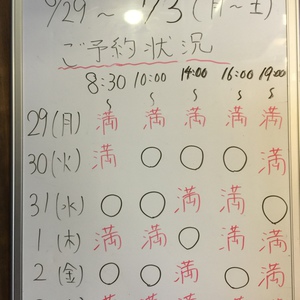 /29 ～ /3 (月～土)
ご予約状況
8:30 10:00 14:00 16:00 19:00
～ ～ ～ ～ ～
29(月) 満 満 満 満 満
30(火) 満 ○ ○ ○ 満
31(水) ○ ○ 満 満 ○
1(木) 満 満 ○ 満 満
2(金) ○ ○ 満 ○ 満